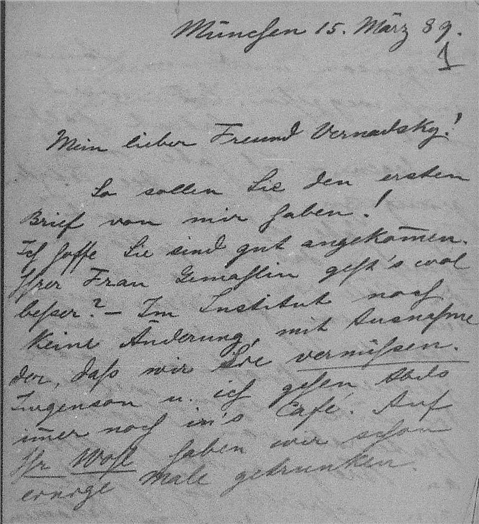 München 15. März 89.
1
Mein lieber Freund Vernadsky!
So sollen Sie den ersten
Brief von mir haben!
Ich hoffe Sie sind gut angekom̄en.
Ihrer Frau Gemahlin geht's wol
beßer? – Im Institut noch
keine Änderung, mit Ausnahme
der, daß wir Sie vermißen.
u. ich gehen Abds
im̄er noch in's Café. Auf
Ihr Wohl haben wir schon
einige Male getrunken.